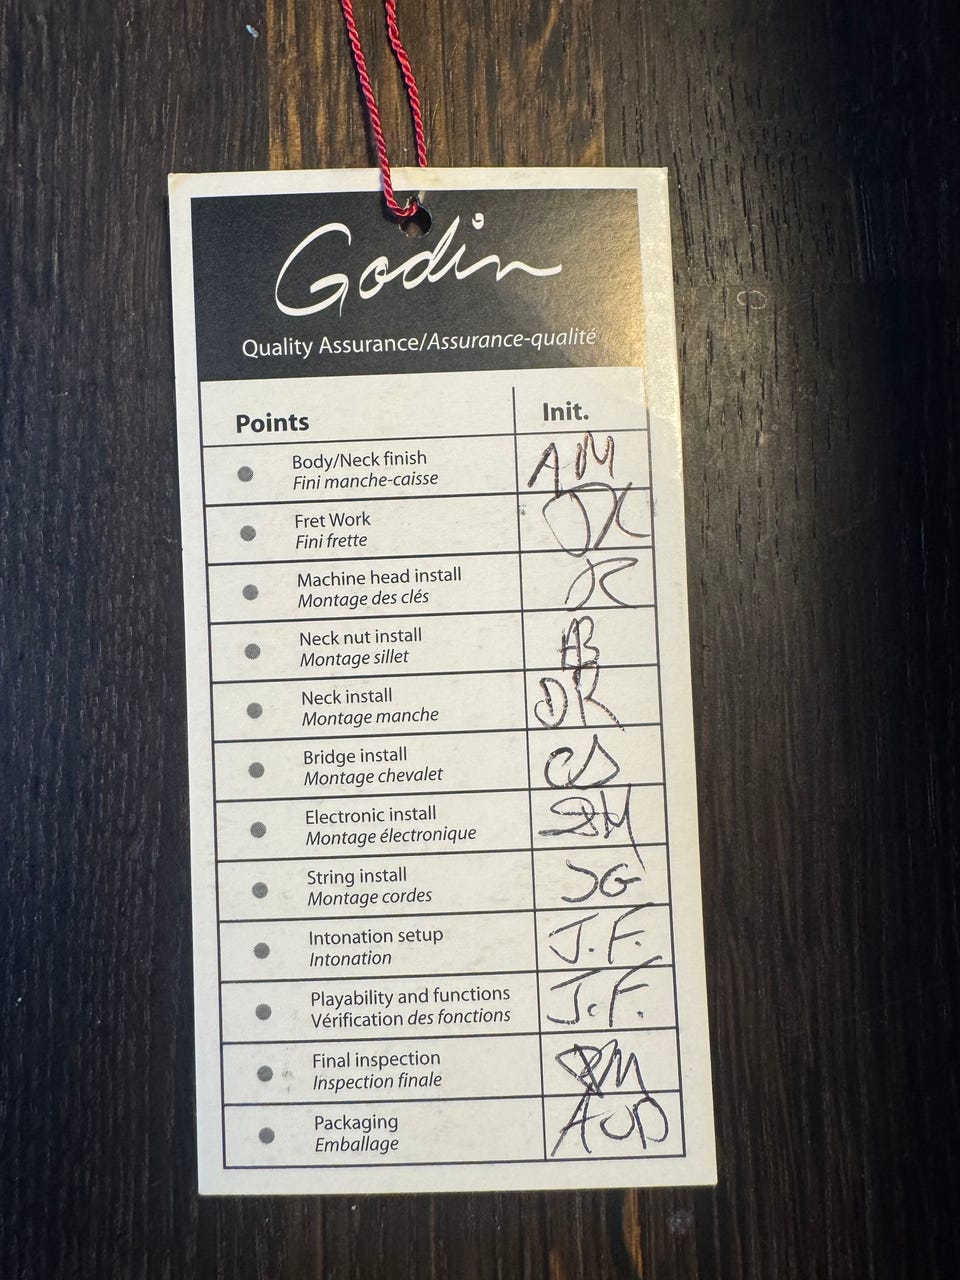 Godin
Quality Assurance/Assurance-qualité
Points Init.
Body/Neck finish AM
Fini manche-caisse
Fret Work
Fini frette
Machine head install
Montage des clés
Neck nut install AB
Montage sillet
Neck install DR
Montage manche
Bridge install CD
Montage chevalet
Electronic install
Montage électronique
String install JG
Montage cordes
Intonation setup J.F.
Intonation
Playability and functions J.F.
Vérification des fonctions
Final inspection
Inspection finale
Packaging AUD
Emballage